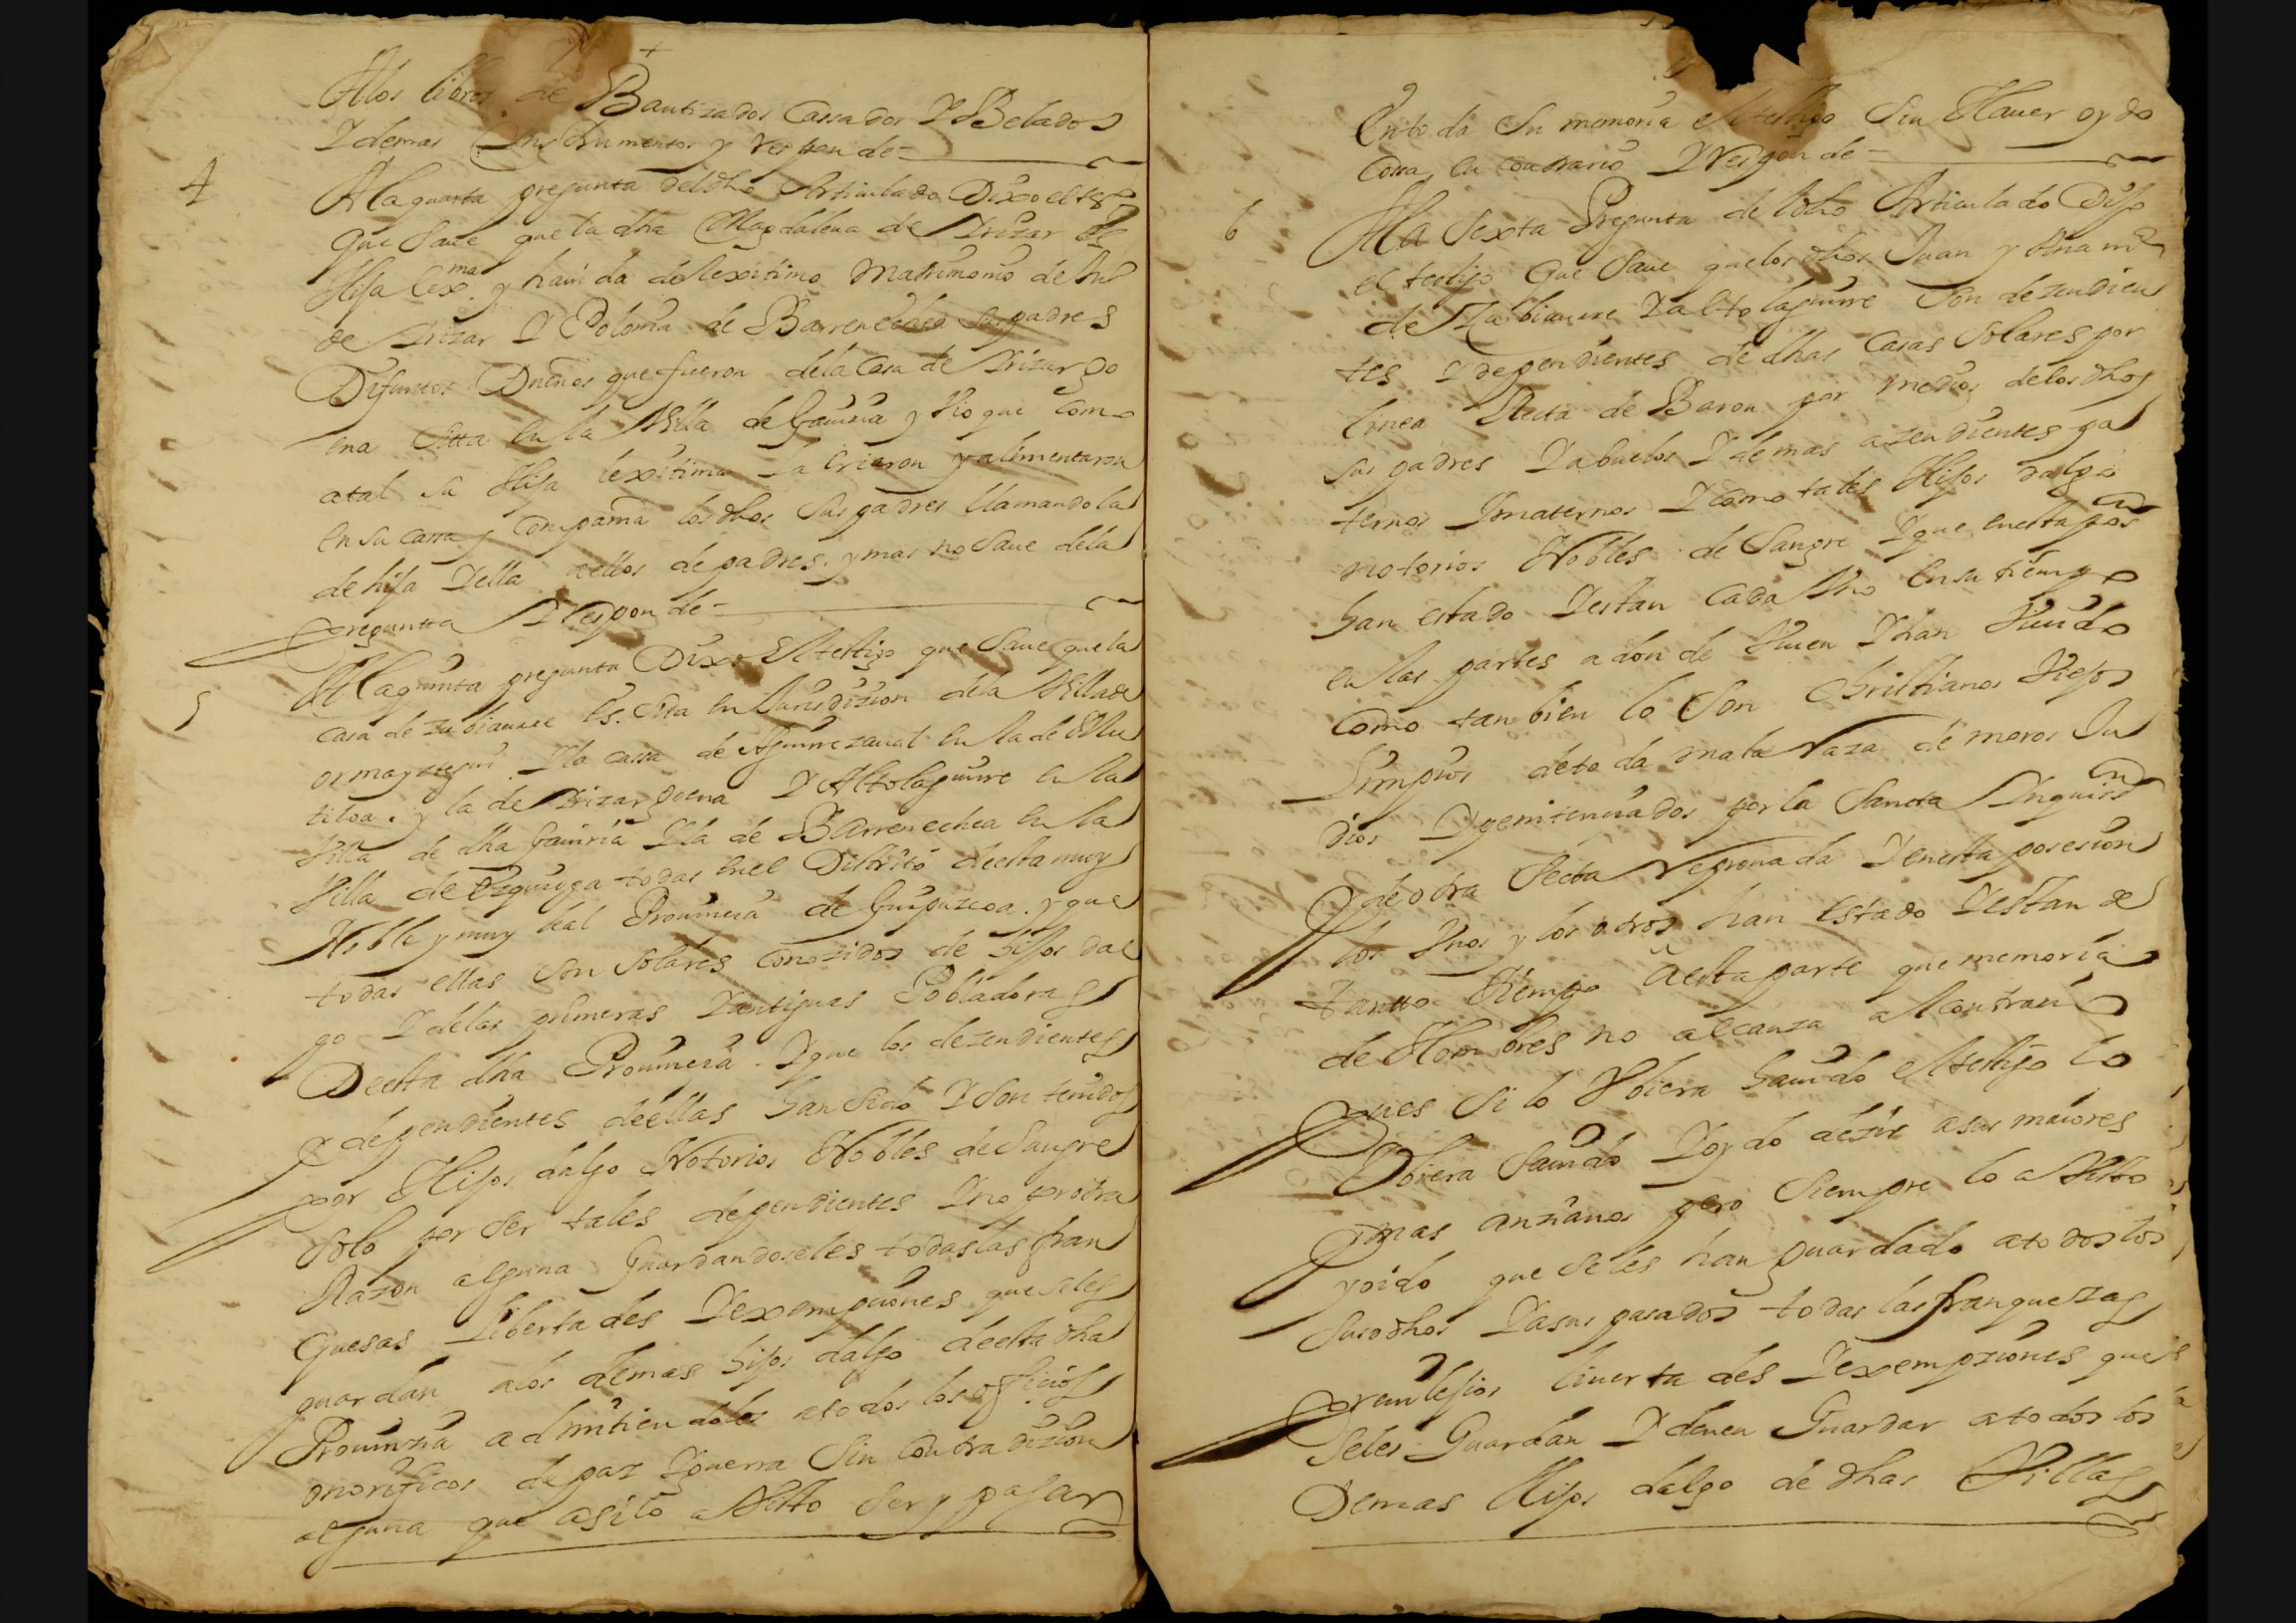 Alos libros de Bautizados Cassados Y Belados
Y demas Instrumentos y responde=
4
Ala quarta pregunta deldho Articulado Dixo el testº
que Saue que la dha Magdalena de Yrizar es
Hija lexma y hauida de lexitimo Matrimonio de Juº
de Yrizar Y Polonia de Barrenechea Sus padres
Difuntos Dueños que fueron dela Casa de Yrizar go
ena Sitta en la Villa de Gauiria y Vio que Como
atal Su Hija lexitima la Criaron y alimentaron
en Su Cassa y Compania los dhos Sus padres llamandola
de hija Y ella aellos de padres. y mas no Saue dela
pregunta Y Responde=
5
Ala quinta pregunta Dixo el testigo que Saue que la
Casa de Zubiaurre es. Sita en Jurisdizion dela Villa de
ormayztegui Y la cassa de Aguirrezaual en la de Mu
tiloa. y la de Yrizar goena Y Altolaguirre en la
Villa de dha Gauiria Y la de Barrenechea en la
Villa de Ezquioga todas en el Distrito de esta muy
Noble y muy leal Prouincia de Guipuzcoa. y que
todas ellas Son Solares Conozidos de hijos dal
go Y delas primeras Y antiguas Pobladoras
De esta dha Prouincia. Y que los dezendientes
Y dependientes de ellas han Sido Y Son tenidos
por Hijos dalgo Notorios Nobles de Sangre
Solo por Ser tales dependientes Y no por otra
Razon alguna Guardandoseles todas las fran
quesas Libertades Y exempciones que Seles
guardan alos demas hijos dalgo de esta dha
Prouinzia admitiendoles atodos los officios
onorificos de paz Y guerra Sin Contradizion
alguna que asi lo a Visto Ser y pasar
En toda Su memoria el testigo Sin Hauer oydo
Cossa en Contrario Y Responde=
6
Ala Sexta Pregunta de ldho Articulado Dijo
el testigo Que Saue que los dhos Juan y Ana mª
de Zubiaurre Y altolaguirre Son dezendien
tes Y dependientes de dhas Casas Solares por
linea Recta de Baron por medio delos dhos
Sus padres Y abuelos Y demas azendientes pa
ternos Y maternos Y Como tales Hijos dalgo
notorios Nobles de Sangre Y que en esta posºⁿ
han estado Y estan Cada Vno en Su tiempo
en las partes a donde Viuen Y han Viuido
Como tanbien lo Son Christianos Viejos
Limpios de toda mala Raza de moros Ju
dios Y penitenciados por la Sancta Ynquisiºⁿ
Y de otra Secta Reprouada Y en esta posesion
los Vnos y los otros han estado Y estan de
tantto tiempo a esta parte que memoria
de Hombres no alcanza al Contrario
pues Si lo Vbiera hauido el testigo lo
Vbiera Sauido Y oydo dezir a sus maiores
Y mas anzianos pero Siempre lo a Visto
y oido que Seles han guardado atodos los
Susodhos Y a sus pasados todas las franquezas
preuilejios liuertades Y exempziones que
Seles Guardan Y deuen Guardar atodos los
Demas Hijos dalgo de dhas Villas